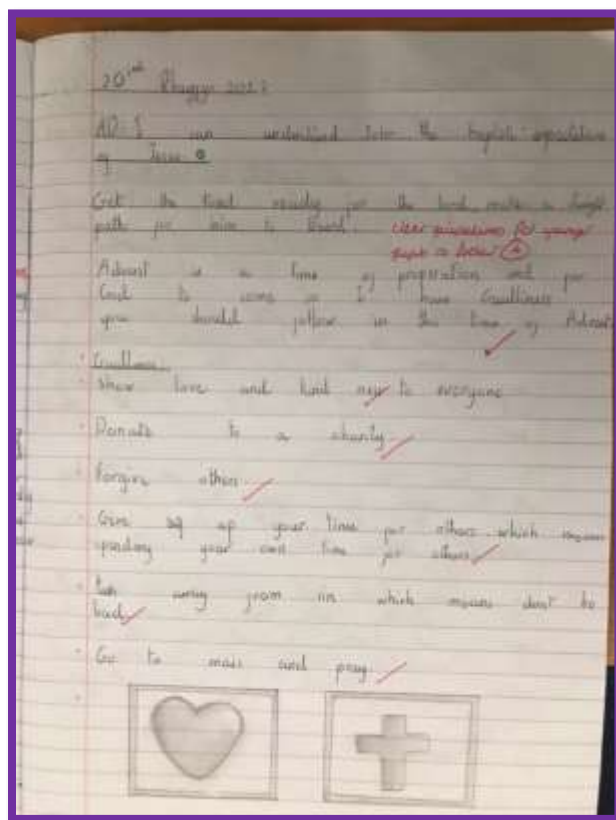 can understand John the baptist
of Jesus
Get the ready for the Lord, make a
path for him to
clear guidelines for younger
to follow
Advent is a time of preparation and for
God to come so I have Guidlines
you should follow in this time of Advent
Guidlines
Show love and kind ness to everyone
Donate to a charity
Forgive others
Give up your time for others which means
spending your own time for others
turn away from sin which means don't be
bad
Go to mass and pray